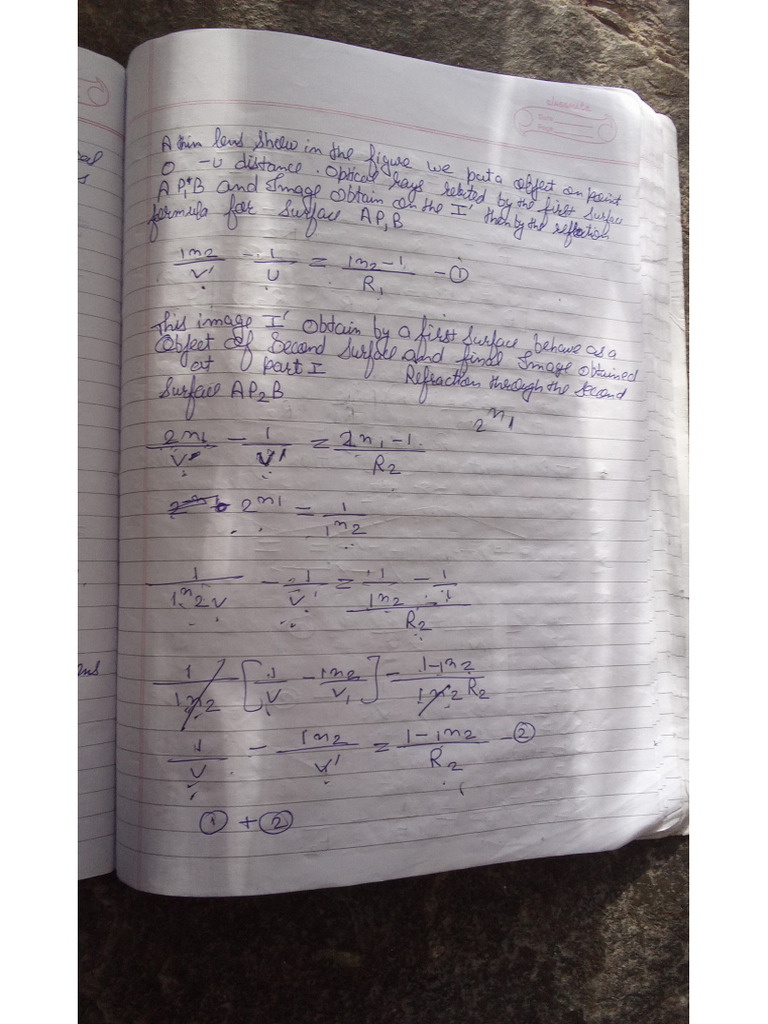 classmate
Date
Page
A thin lens show in the figure we put a object on point
O -u distance. Optical rays by the first surface
AP₁B and Image Obtain on the I' then by the
formula for Surface AP₁B
₁n₂/v' - 1/u = ₁n₂-1/R₁ - ①
This image I' Obtain by a first surface behave as a
Object of Second Surface and final Image obtained
at part I Refraction through the Second
Surface AP₂B
₂n₁
₂n₁/v - 1/v' = ₂n₁-1/R₂
₂n₁ = 1/₁n₂
1/₁n₂v - 1/v' = 1/₁n₂ - 1/1 / R₂
1/₁n₂ [1/v - ₁n₂/v₁] = 1-₁n₂/₁n₂R₂
1/v - ₁n₂/v' = 1-₁n₂/R₂ - ②
① + ②
al
s
ns